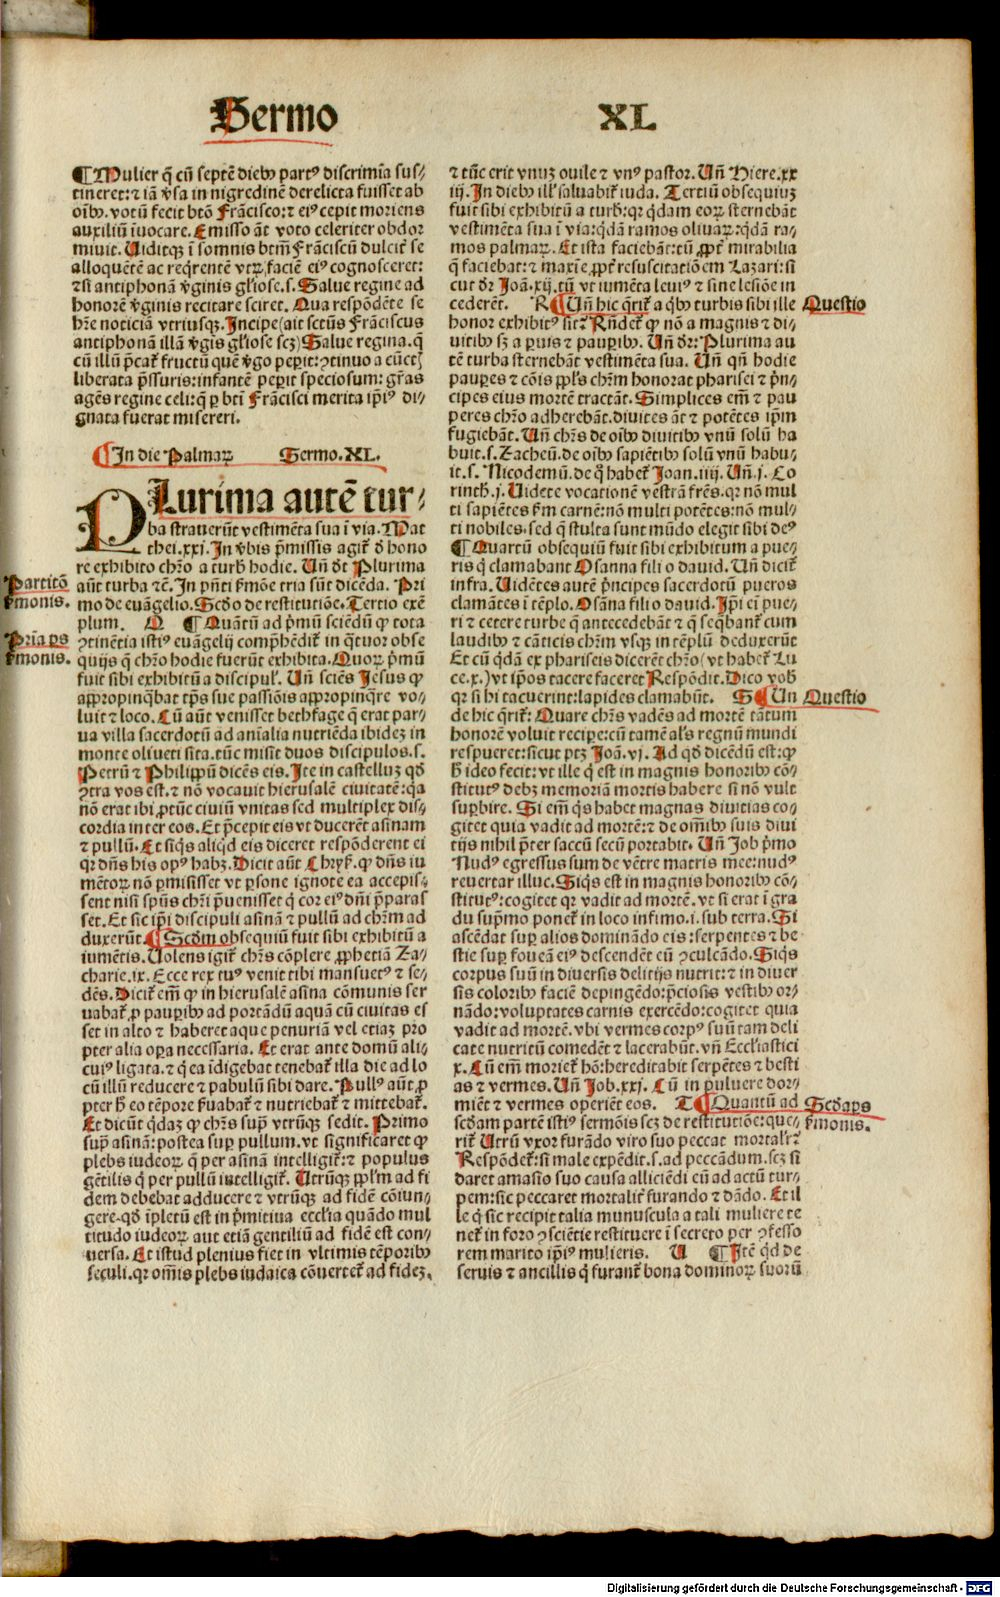 Sermo XL
¶Mulier q̃ cũ septẽ diebꝰ partꝰ discrimĩa sus⸗
tineret: ⁊ iã v̾sa in nigredinẽ derelicta fuisset ab
oĩbꝰ. votũ fecit btõ Frãcisco: ⁊ eiꝰ cepit moriens
auxiliũ ĩuocare. Emisso aũt voto celeriter obdor
miuit. Uiditqꝫ ĩ somnis btm̃ Frãciscũ dulcit̾ se
alloquẽtẽ ac reqͥrentẽ vtꝝ faciẽ eiꝰ cognosceret:
⁊ si antiphonã v̾ginis gl̾iose.s. Salue regine ad
honorẽ v̾ginis recitare sciret. Qua respõdẽte se
hr̃e noticiã vtriusqꝫ. Incipe (ait sctũs Frãciscus
antiphonã illã v̾gĩs gl̾iose scꝫ) Salue regina. q̃
cũ illũ p̃cat̾ fructũ quẽ v̾go peꝑit: ꝯtinuo a cũct̾
liberata p̃ssuris: infantẽ peꝑit speciosum: gr̃as
agẽs regine celi: q̃ ꝑ bt̃i Frãcisci merita ip̃iꝰ di⸗
gnata fuerat misereri.
¶In die Palmaꝝ Sermo.XL.
PLurima autẽ tur⸗
ba strauerũt vestimẽta sua ĩ via. Mat
thei.xxj. In v̾bis p̃missis agit̾ d̾ hono
re exhibito chr̃o a turb̾ hodie. Uñ dr̃ Plurima
aũt turba ⁊c̃. In p̃nti s̾mõe tria sũt dicẽda. Pri
mo de euãgelio. Scd̾o de restitutiõe. Tertio exẽ
plum. Q ¶Quãtũ ad p̃mũ sciẽdũ ꝙ tota
ꝯtinẽtia istiꝰ euãgelij comp̃hẽdit̾ in qͣtuor obse
quijs q̃ chr̃o hodie fuerũt exhibita. Quoꝝ p̃mũ
fuit sibi exhibitũ a discipul̾. Uñ sciẽs Jesus ꝙ
appropinqͣbat tp̃s sue passiõis appropinqͣre vo⸗
luit ⁊ loco. Cũ aũt venisset bethfage q̃ erat par⸗
ua villa sacerdotũ ad anĩalia nutriẽda ibidẽ in
monte oliueti sita. tũc misit duos discipulos.s.
Petrũ ⁊ Philippũ dicẽs eis. Ite in castellũꝫ qd̾
ꝯtra vos est. ⁊ nõ vocauit hierusalẽ ciuitatẽ: qͣ
nõ erat ibi ꝓ tũc ciuiũ vnitas sed multiplex dis⸗
cordia inter eos. Et p̃cepit eis vt ducerẽt asinam
⁊ pullũ. Et siqͥs aliqͥd eis diceret respõderent ei
qꝛ dñs his opꝰ habꝫ. Dicit aũt Chryẜ. ꝙ dñs iu
mẽtoꝝ nõ ꝑmisisset vt ꝑsone ignote ea accepis⸗
sent nisi spũs chr̃i p̃uenisset q̃ cor eiꝰ dñi p̃paras
set. Et sic ip̃i discipuli asinã ⁊ pullũ ad chr̃m ad
duxerũt. ¶Scd̾m obsequiũ fuit sibi exhibitũ a
iumẽtis. Uolens igit̾ chr̃s cõplere ꝓphetiã Za⸗
charie.ix. Ecce rex tuꝰ venit tibi mansuetꝰ ⁊ se⸗
dẽs. Dicit̾ em̃ ꝙ in hierusalẽ asina cõmunis ser
uabat̾ ꝓ pauꝑibꝰ ad portãdũ aquã cũ ciuitas es
set in alto ⁊ haberet aque penuriã vel etiaꝫ pro
pter alia oꝑa necessaria. Et erat ante domũ ali⸗
cuiꝰ ligata. ⁊ q̃ ea ĩdigebat tenebat̾ illa die ad lo
cũ illũ reducere ⁊ pabulũ sibi dare. Pullꝰ aũt ꝓ
pter h̾ eo tẽpore s̾uabat̾ ⁊ nutriebat̾ ⁊ mittebat̾.
Et dicũt qͥdaꝫ ꝙ chr̃s suꝑ vtrũqꝫ sedit. Primo
suꝑ asinã: postea suꝑ pullum. vt significaret ꝙ
plebs iudeoꝝ q̃ per asinã intelligit̾: ⁊ populus
gẽtilis q̃ per pullũ intelligit̾. Utrũqꝫ ppl̾m ad fi
dem debebat adducere ⁊ vtrũqꝫ ad fidẽ cõiun⸗
gere. qd̾ ĩpletũ est in p̃mitiua eccl̾ia quãdo mul
titudo iudeoꝝ aut etiã gentiliũ ad fidẽ est con⸗
uersa. Et istud plenius fiet in vltimis tẽporibꝰ
seculi. qꝛ om̃is plebs iudaica cõuertet̾ ad fidẽꝫ.
Partitõ
s̾monis.
Pria ps
s̾monis.
⁊ tũc erit vnuꝫ ouile ⁊ vnꝰ pastor. Uñ Hiere.xx
iij. In diebꝰ ill̾ saluabit̾ iuda. Tertiũ obsequiuꝫ
fuit sibi exhibitũ a turb̾: qꝛ qͥdam eoꝝ sternebãt
vestimẽta sua ĩ via: qͥdã ramos oliuaꝝ: qͥdã ra⸗
mos palmaꝝ. Et ista faciebãt: tũ ꝓpt̾ mirabilia
q̃ faciebat: ⁊ maxĩe ꝓpt̾ resuscitatiõem Lazari: si
cut dr̃ Joã.xij. tũ vt iumẽta leuiꝰ ⁊ sine lesiõe in
cederẽt. R ¶Uñ hic q̃rit̾ a qͥbꝰ turbis sibi ille
honoꝛ exhibitꝰ sit? Rñdet̾ ꝙ nõ a magnis ⁊ di⸗
uitibꝰ sꝫ a ꝑuis ⁊ pauꝑibꝰ. Uñ dr̃: Plurima au
tẽ turba sternebãt vestimẽta sua. Uñ qñ hodie
pauꝑes ⁊ cõis ppl̾s chr̃m honorat pharisei ⁊ p̃n⸗
cipes eius mortẽ tractãt. Simplices em̃ ⁊ pau
peres chr̃o adherebãt. diuites aũt ⁊ potẽtes ip̃m
fugiebãt. Uñ chr̃s de oĩbꝰ diuitibꝰ vnũ solũ ha
buit.s. Zacheũ. de oĩbꝰ sapiẽtibꝰ solũ vnũ habu⸗
it.s. Nicodemũ. de q̃ habet̾ Joan.iiij. Uñ.j. Co
rinth̾.j. Uidete vocationẽ vestrã fr̃es. qꝛ nõ mul
ti sapiẽtes s̾m carnẽ: nõ multi potẽtes: nõ mul⸗
ti nobiles. sed q̃ stulta sunt mũdo elegit sibi deꝰ
¶Quartũ obsequiũ fuit sibi exhibitum a pue⸗
ris q̃ clamabant Osanna fili o dauid. Uñ dicit̾
infra. Uidẽtes autẽ p̃ncipes sacerdotũ pueros
clamãtes ĩ tẽplo. Osãna fili o dauid. Ip̃i ei pue⸗
ri ⁊ cetere turbe q̃ antecedebãt ⁊ q̃ seqͣbant̾ cum
laudibꝰ ⁊ cãticis chr̃m vsqꝫ in tẽplũ deduxerũt
Et cũ qͥdã ex phariseis dicerẽt chr̃o (vt habet̾ Lu
ce.x.) vt ip̃os tacere faceret Respõdit. Dico vob̾
qꝛ si hi tacuerint: lapides clamabũt. S ¶Un
de hic q̃rit̾: Quare chr̃s vadẽs ad mortẽ tãtum
honorẽ voluit recipe: cũ tamẽ al̾s regnũ mundi
respueret: sicut ptꝫ Joã.vj. Ad qd̾ dicẽdũ est: ꝙ
h̾ ideo fecit: vt ille q̃ est in magnis honoribꝰ cõ⸗
stitutꝰ debꝫ memoriã mortis habere si nõ vult
suꝑbire. Si em̃ qͥs habet magnas diuitias co⸗
gitet quia vadit ad mortẽ: ⁊ de om̃ibꝰ suis diui
tijs nihil p̃ter saccũ secũ portabit. Uñ Job p̃mo
Nudꝰ egressus sum de vẽtre matris mee: nudꝰ
reuertar illuc. Siqͥs est in magnis honoribꝰ cõ⸗
stitutꝰ: cogitet qꝛ vadit ad mortẽ. vt si erat ĩ gra
du supͣmo ponet̾ in loco infimo.i. sub terra. Si
ascẽdat suꝑ alios dominãdo eis: serpentes ⁊ be
stie suꝑ foueã eiꝰ descendẽt eũ ꝯculcãdo. Siqͥs
corpus suũ in diuersis delitijs nutrit: ⁊ in diuer
sis coloribꝰ faciẽ depingẽdo: p̃ciosis vestibꝰ or⸗
nãdo: voluptates carnis exercẽdo: cogitet quia
vadit ad mortẽ. vbi vermes corpꝰ suũ tam deli
cate nutritũ comedẽt ⁊ lacerabũt. vñ Eccl̾iastici
x. Cũ em̃ moriet̾ hõ: hereditabit serpẽtes ⁊ besti
as ⁊ vermes. Uñ Job.xxj. Cũ in puluere dor⸗
miẽt ⁊ vermes operiẽt eos. T ¶Quantũ ad
scd̾am partẽ istiꝰ sermõis scꝫ de restitutiõe: que⸗
rit̾ Utrũ vxor furãdo viro suo peccat mortal̾r?
Respõdet̾: si male expẽdit.s. ad peccãdum. scꝫ si
daret amasio suo causa alliciẽdi eũ ad actũ tur⸗
pem: sic peccaret mortalit̾ furando ⁊ dãdo. Et il
le q̃ sic recipit talia munuscula a tali muliere te
net̾ in foro ꝯsciẽtie restituere ĩ secreto per ꝯfesso
rem marito ip̃iꝰ mulieris. U ¶Itẽ qͥd de
seruis ⁊ ancillis q̃ furant̾ bona dominoꝝ suoꝝũ
Questio
Questio
Scd̾a ps
s̾monis.
Digitalisierung gefördert durch die Deutsche Forschungsgemeinschaft - DFG